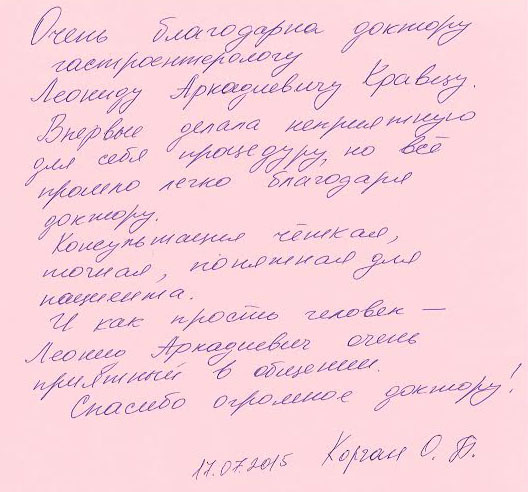 Очень благодарна доктору
гастроентерологу
Леониду Аркадиевичу Кравцу.
Впервые делала неприятную
для себя процедуру, но всё
прошло легко благодаря
доктору.
Консультация чёткая,
точная, понятная для
пациента.
И как просто человек –
Леонид Аркадиевич очень
приятный в общении.
Спасибо огромное доктору!
17.07.2015 Корган О. П.